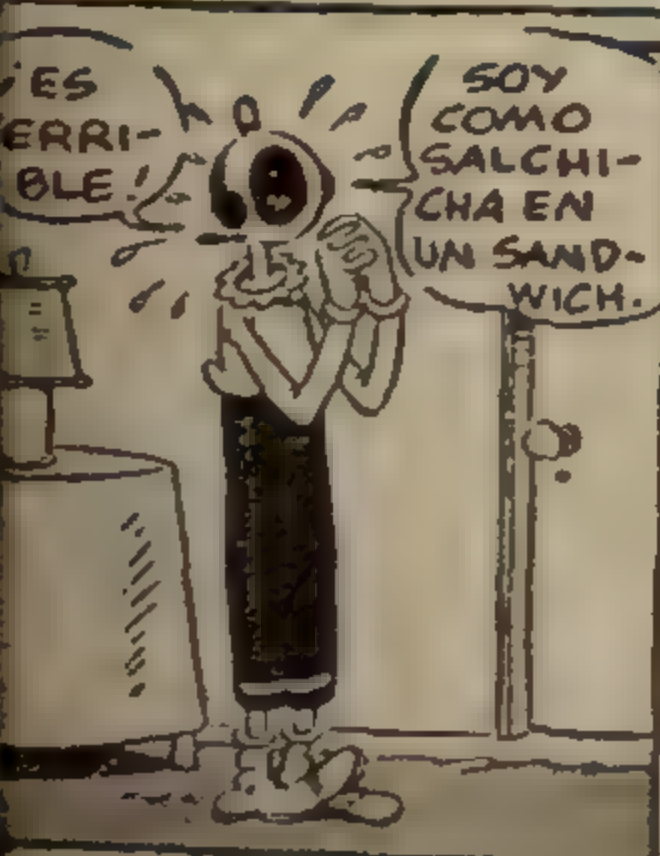 ES
ERRI-
BLE!
SOY
COMO
SALCHI-
CHA EN
UN SAND-
WICH.